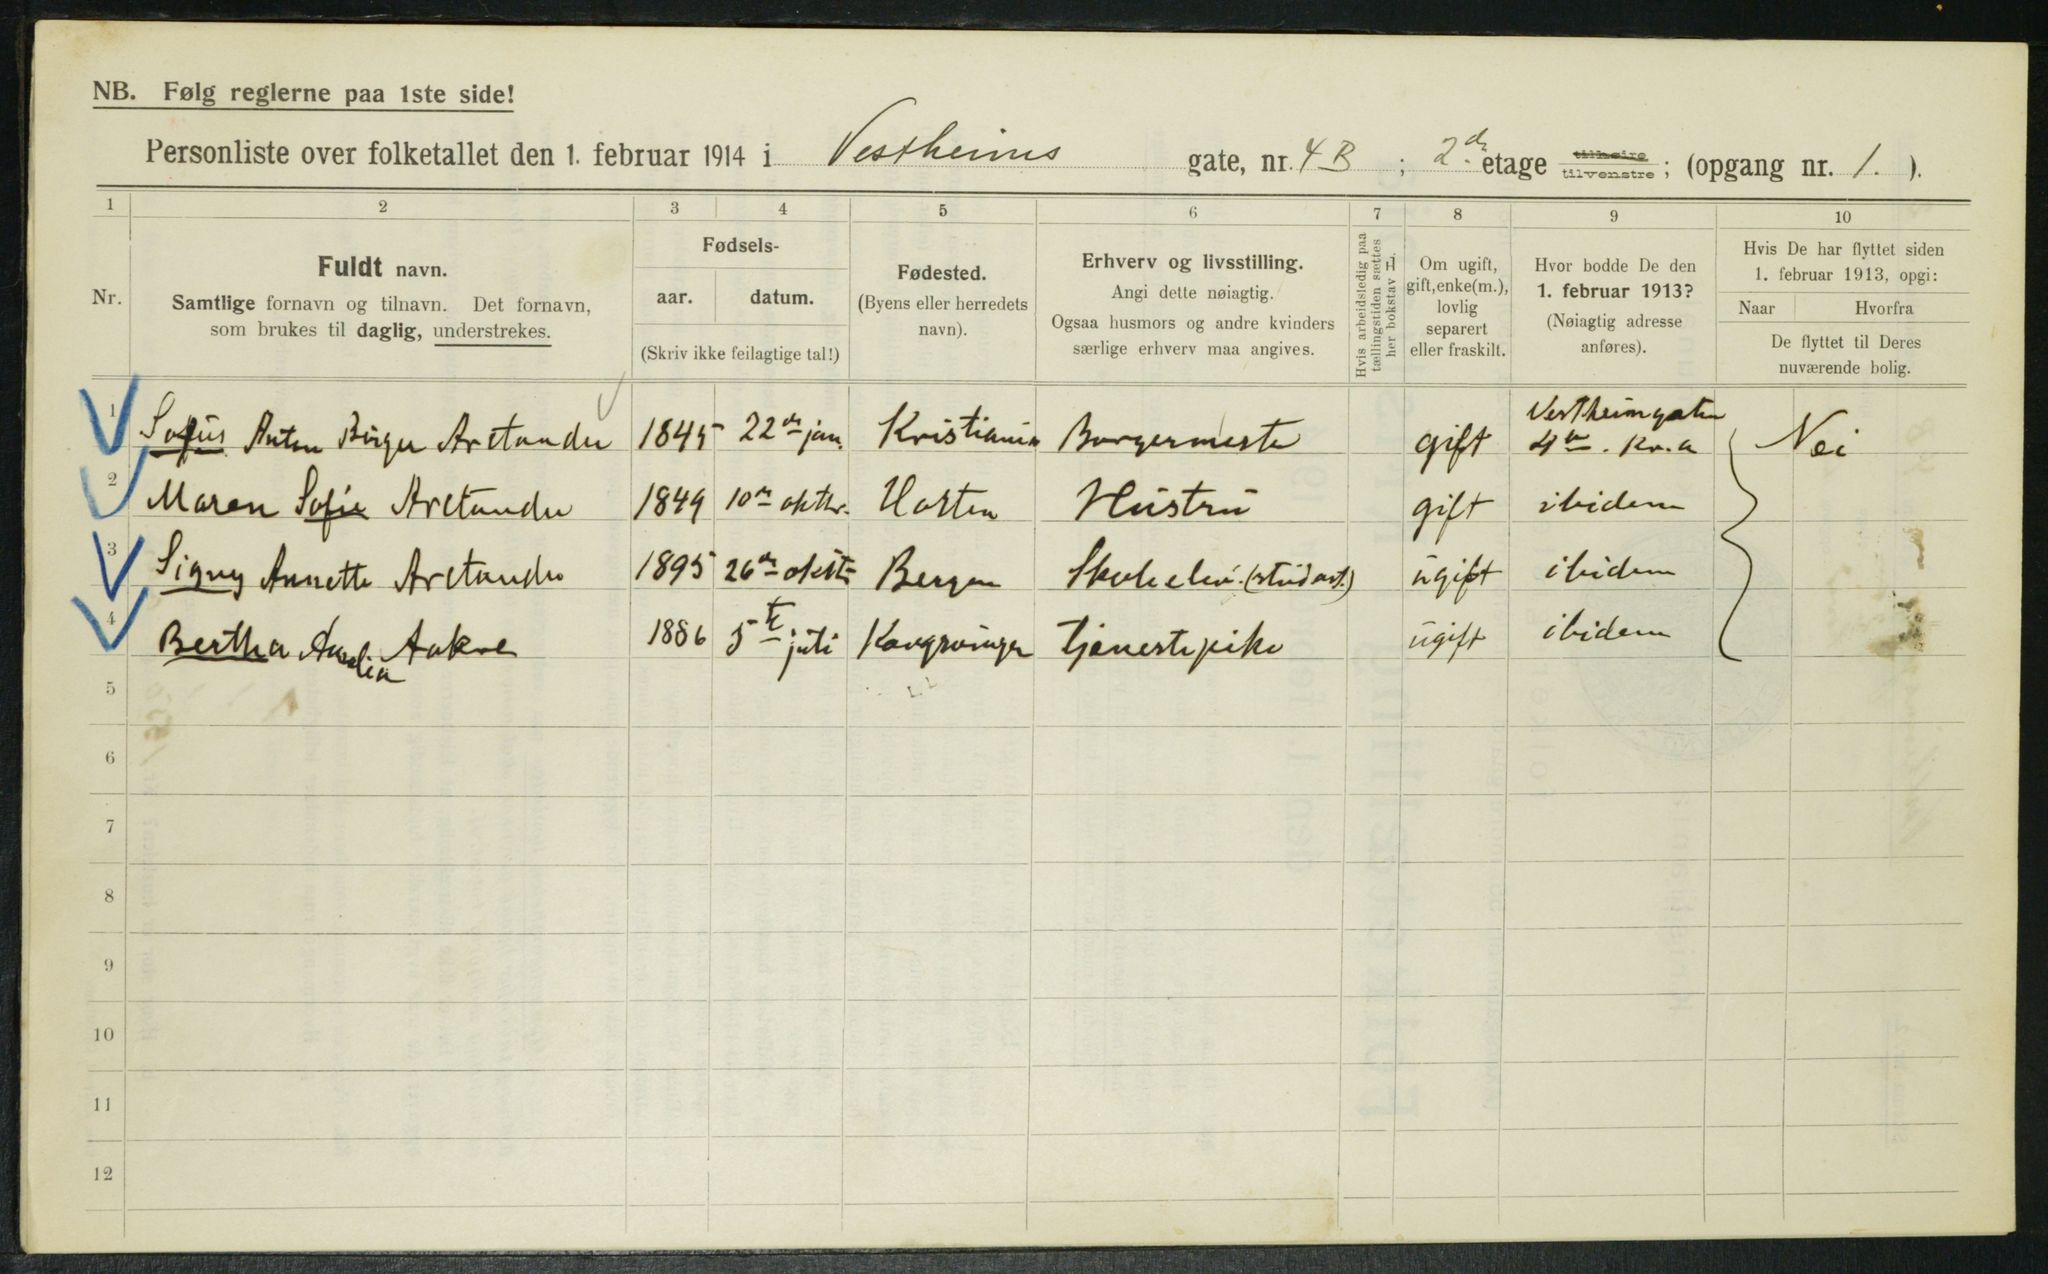 NB. Følg reglerne paa 1ste side!
Personliste over folketallet den 1. februar 1914 i Vestheims gate, nr. 4B ; 2den etage tilhøire tilvenstre ; (opgang nr. 1. ).
1 2 3 4 5 6 7 8 9 10
Nr.
Fuldt navn.
Samtlige fornavn og tilnavn. Det fornavn,
som brukes til daglig, understrekes.
Fødsels-
aar. datum.
(Skriv ikke feilagtige tal!)
Fødested.
(Byens eller herredets
navn).
Erhverv og livsstilling.
Angi dette nøiagtig.
Ogsaa husmors og andre kvinders
særlige erhverv maa angives.
Hvis arbeidsledig paa
tællingstiden sættes
her bokstav L.
Om ugift,
gift, enke(m.),
lovlig
separert
eller fraskilt.
Hvor bodde De den
1. februar 1913?
(Nøiagtig adresse
anføres).
Hvis De har flyttet siden
1. februar 1913, opgi:
Naar Hvorfra
De flyttet til Deres
nuværende bolig.
1 Sofus Anton Birger Arctander 1845 22de jan. Kristiania Borgermester gift Vestheimgaten 4B. Kr.a Nei
2 Maren Sofie Arctander 1849 10de oktbr. Horten Hustru gift ibidem
3 Signy Annette Arctander 1895 26de oktbr Bergen Skoleelev. (student.) ugift ibidem
4 Bertha Aurelia Aakre 1886 5te juli Kongsvinger Tjenestepike ugift ibidem
5
6
7
8
9
10
11
12